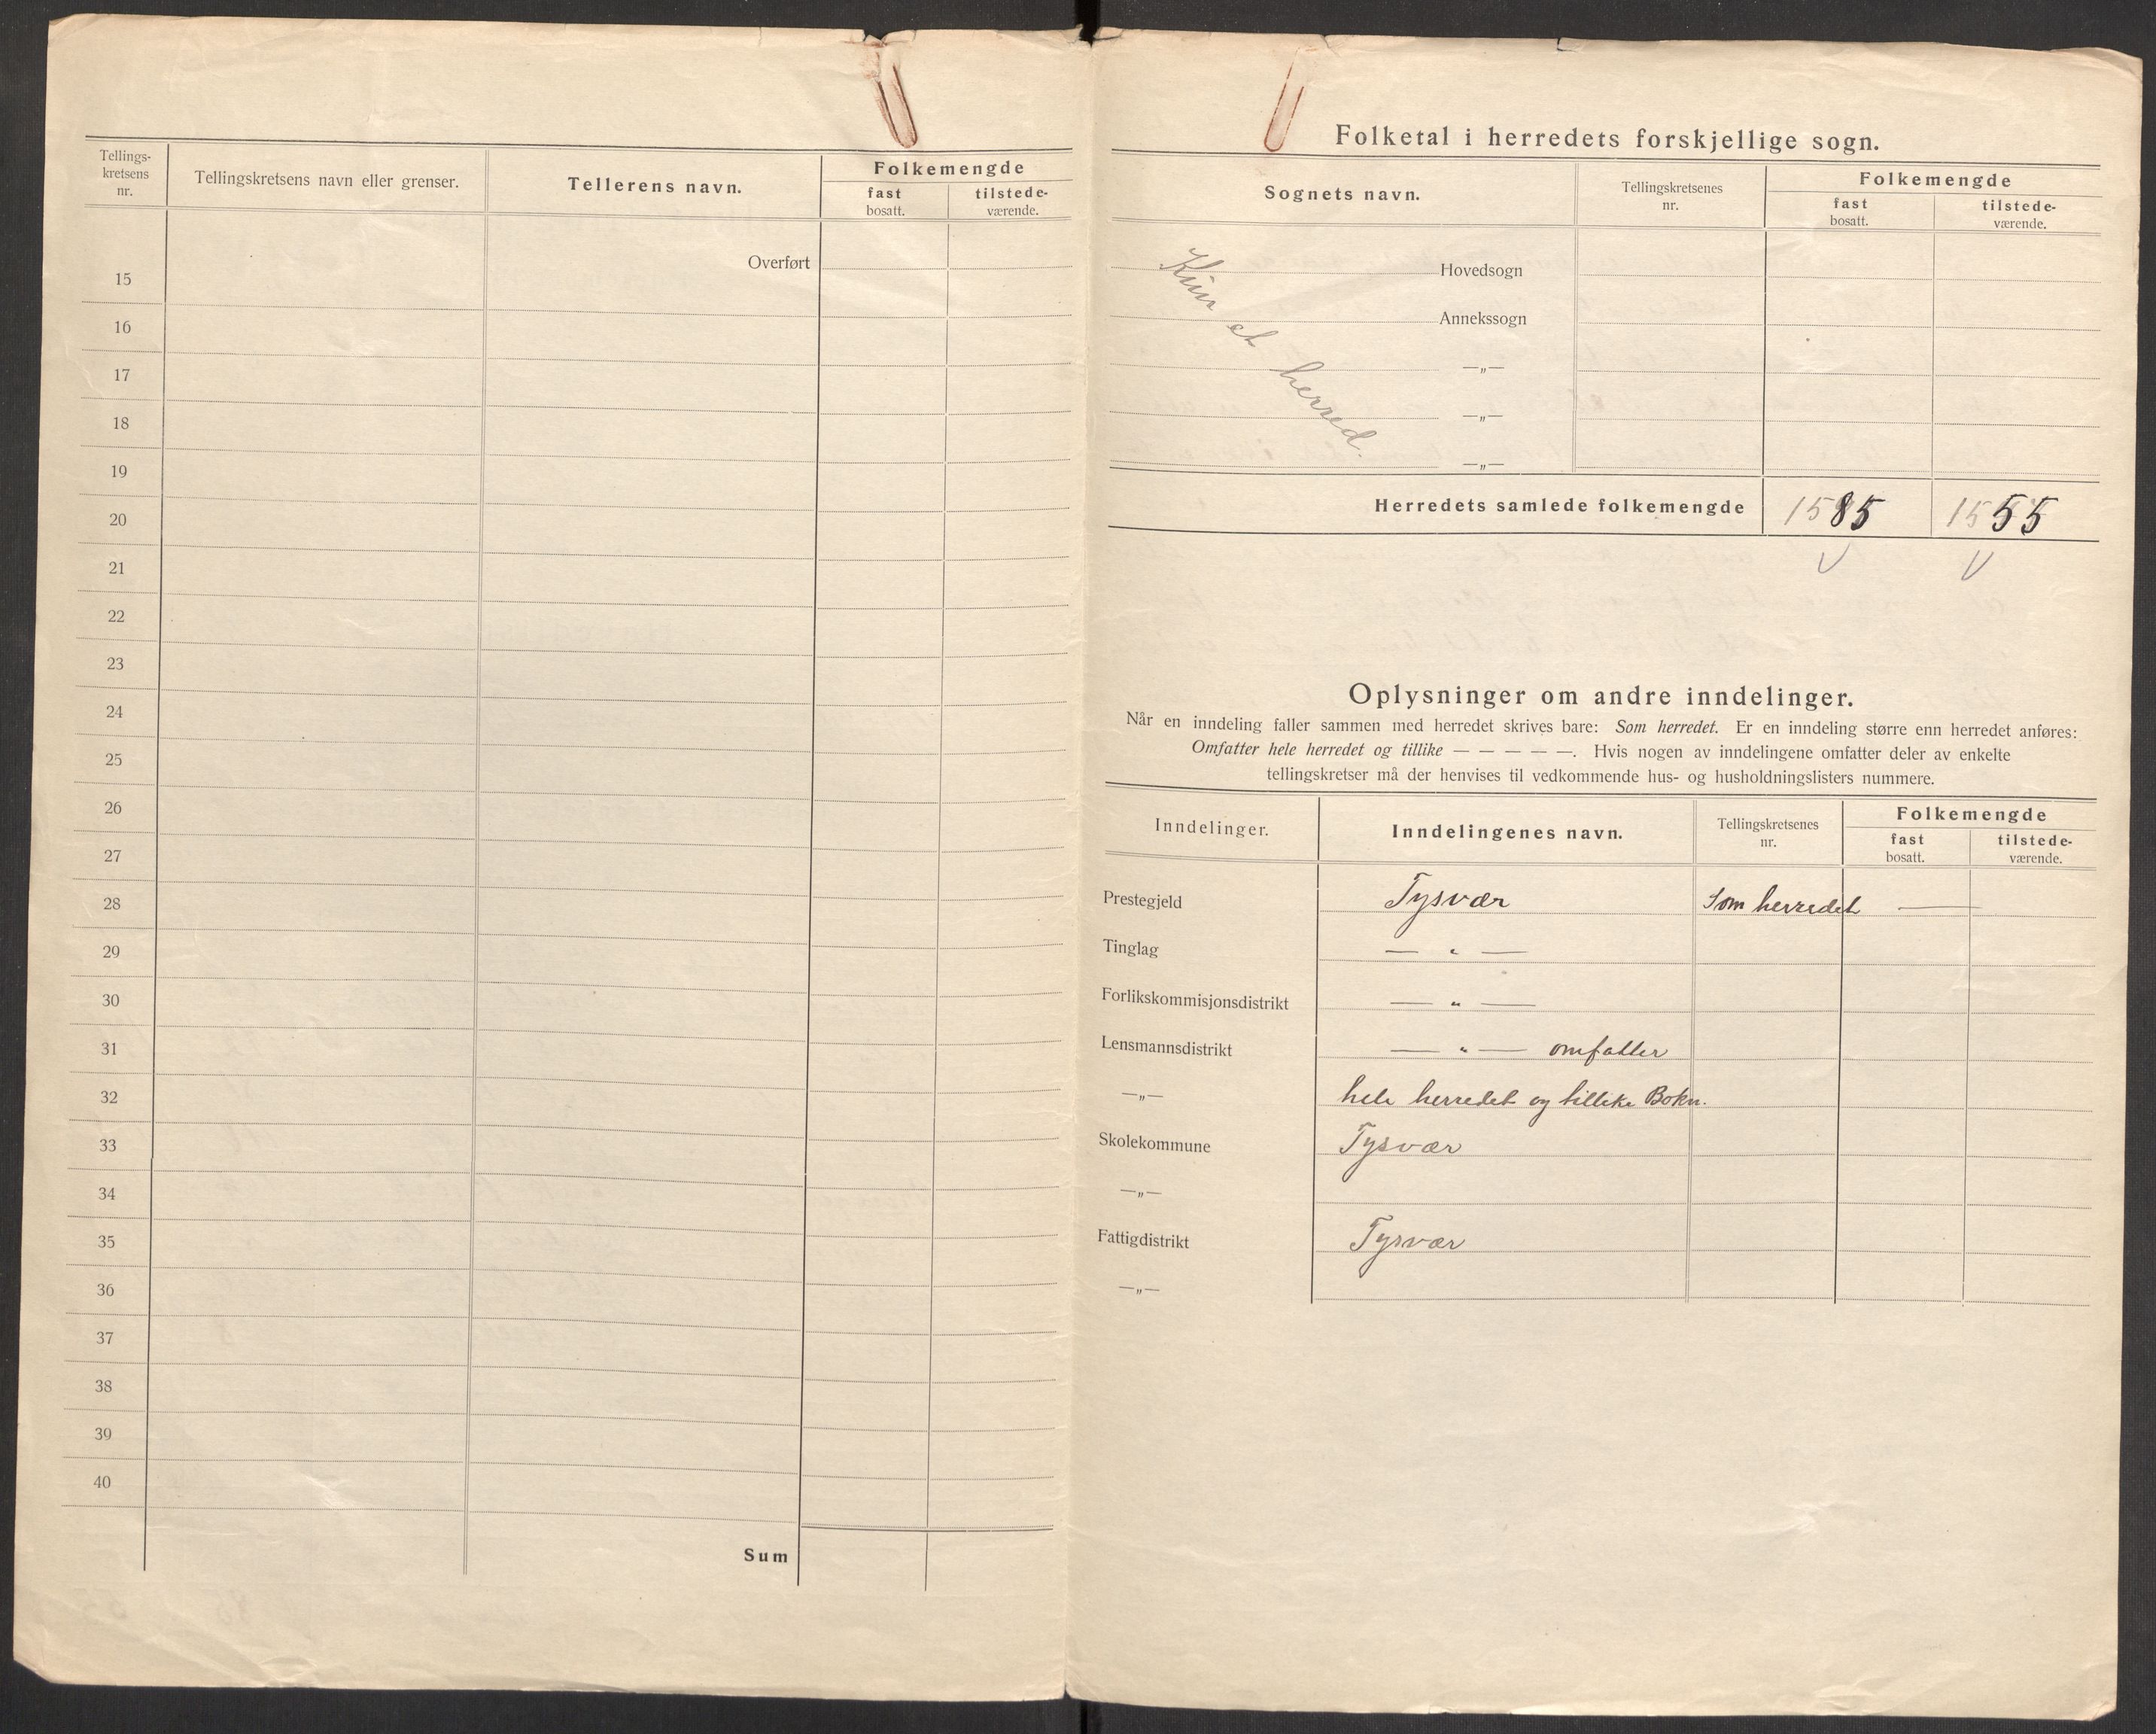 Tellings-
kretsens
nr.
Tellingskretsens navn eller grenser.
Tellerens navn.
Folkemengde
fast
bosatt.
tilstede-
værende.
Overført
15
16
17
18
19
20
21
22
23
24
25
26
27
28
29
30
31
32
33
34
35
36
37
38
39
40
Sum
Folketal i herredets forskjellige sogn.
Sognets navn.
Tellingskretsenes
nr.
Folkemengde
fast
bosatt.
tilstede-
værende.
Hovedsogn
Annekssogn
—„—
—„—
—„—
Kun et herred.
Herredets samlede folkemengde 1585 1555
V V
Oplysninger om andre inndelinger.
Når en inndeling faller sammen med herredet skrives bare: Som herredet. Er en inndeling større enn herredet anføres:
Omfatter hele herredet og tillike — — — — —. Hvis nogen av inndelingene omfatter deler av enkelte
tellingskretser må der henvises til vedkommende hus- og husholdningslisters nummere.
Inndelinger.
Inndelingenes navn.
Tellingskretsenes
nr.
Folkemengde
fast
bosatt.
tilstede-
værende.
Prestegjeld Tysvær Som herredet —
Tinglag — „ —
Forlikskommisjonsdistrikt — „ —
Lensmannsdistrikt — „ — omfatter
—„— hele herredet og tillike Bokn.
Skolekommune Tysvær
—„—
Fattigdistrikt Tysvær
—„—